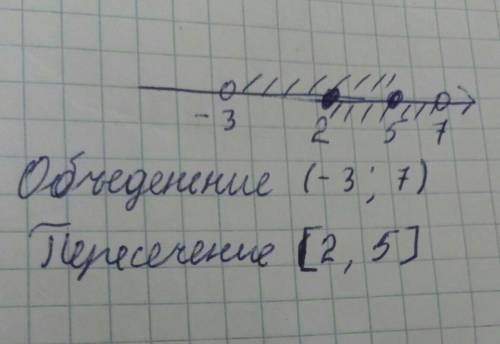 -3 2 5 7
Объеденение (-3; 7)
Пересечение [2, 5]